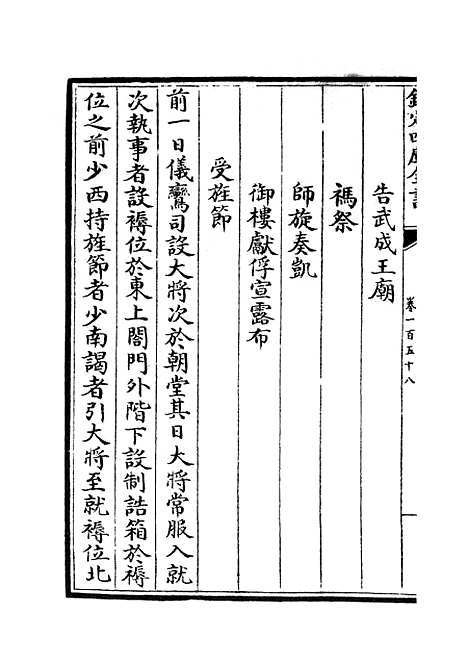 欽定四庫全書
卷一百五十八
告武成王廟
禡祭
師旋奏凱
御樓獻俘宣露布
受旌節
前一日儀鸞司設大將次於朝堂其日大將常服入就
次執事者設褥位於東上閤門外階下設制誥箱於褥
位之前少西持旌節者少南謁者引大將至就褥位北